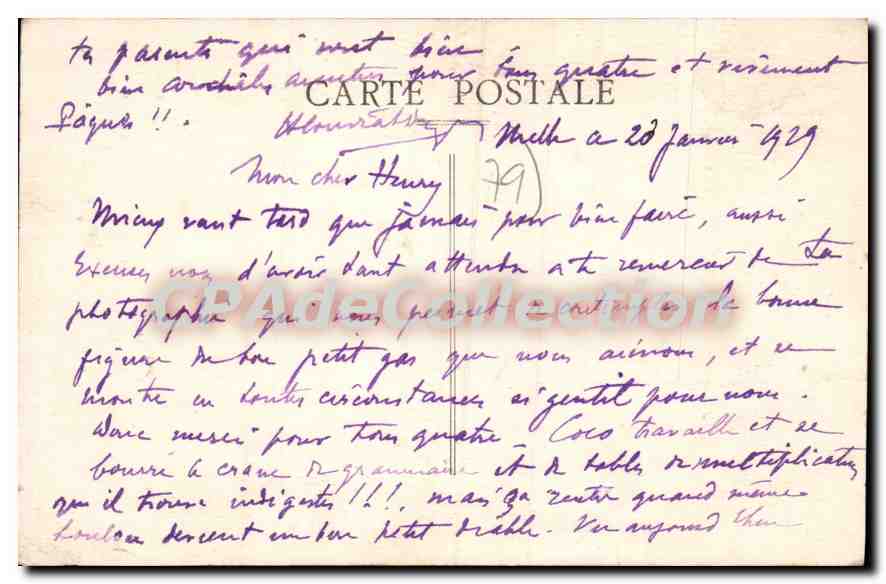 tes parents qui sont bien
bien affectueux pour tous quatre et vivement
CARTE POSTALE
Pâques !!.
Melle le 20 Janvier 1929
79
Mon cher Henry
Mieux vaut tard que jamais pour bien faire, aussi
Excuses nous d'avoir tant attendu à te remercier de ta
photographie qui nous permet de contempler la bonne
figure du bon petit gas que nous aimons, et se
montre en toutes circonstances si gentil pour nous.
Donc merci pour tous quatre _ Coco travaille et se
bourre le crane de grammaire et de tables de multiplication
qu'il trouve indigestes !!!, mais ça rentre quand même.
devient un bon petit diable. Vu aujourd'hui
CPAdeCollection.com